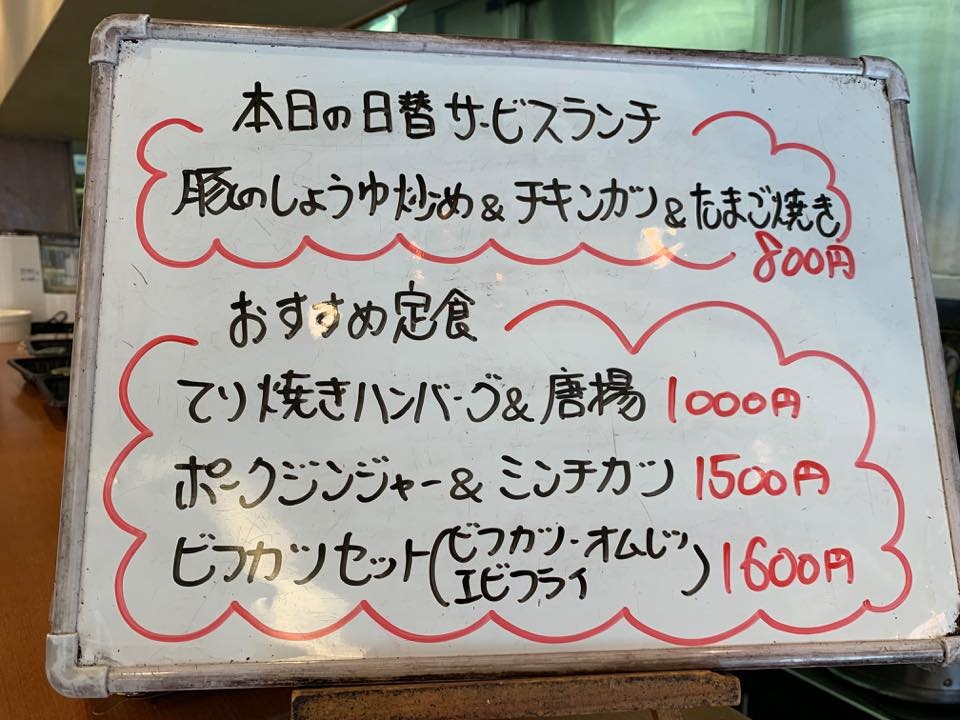 本日の日替サービスランチ
豚のしょうゆ炒め&チキンカツ&たまご焼き
800円
おすすめ定食
てり焼きハンバーグ&唐揚 1000円
ポークジンジャー&ミンチカツ 1500円
ビフカツセット(ビフカツ・オムレツ
エビフライ) 1600円